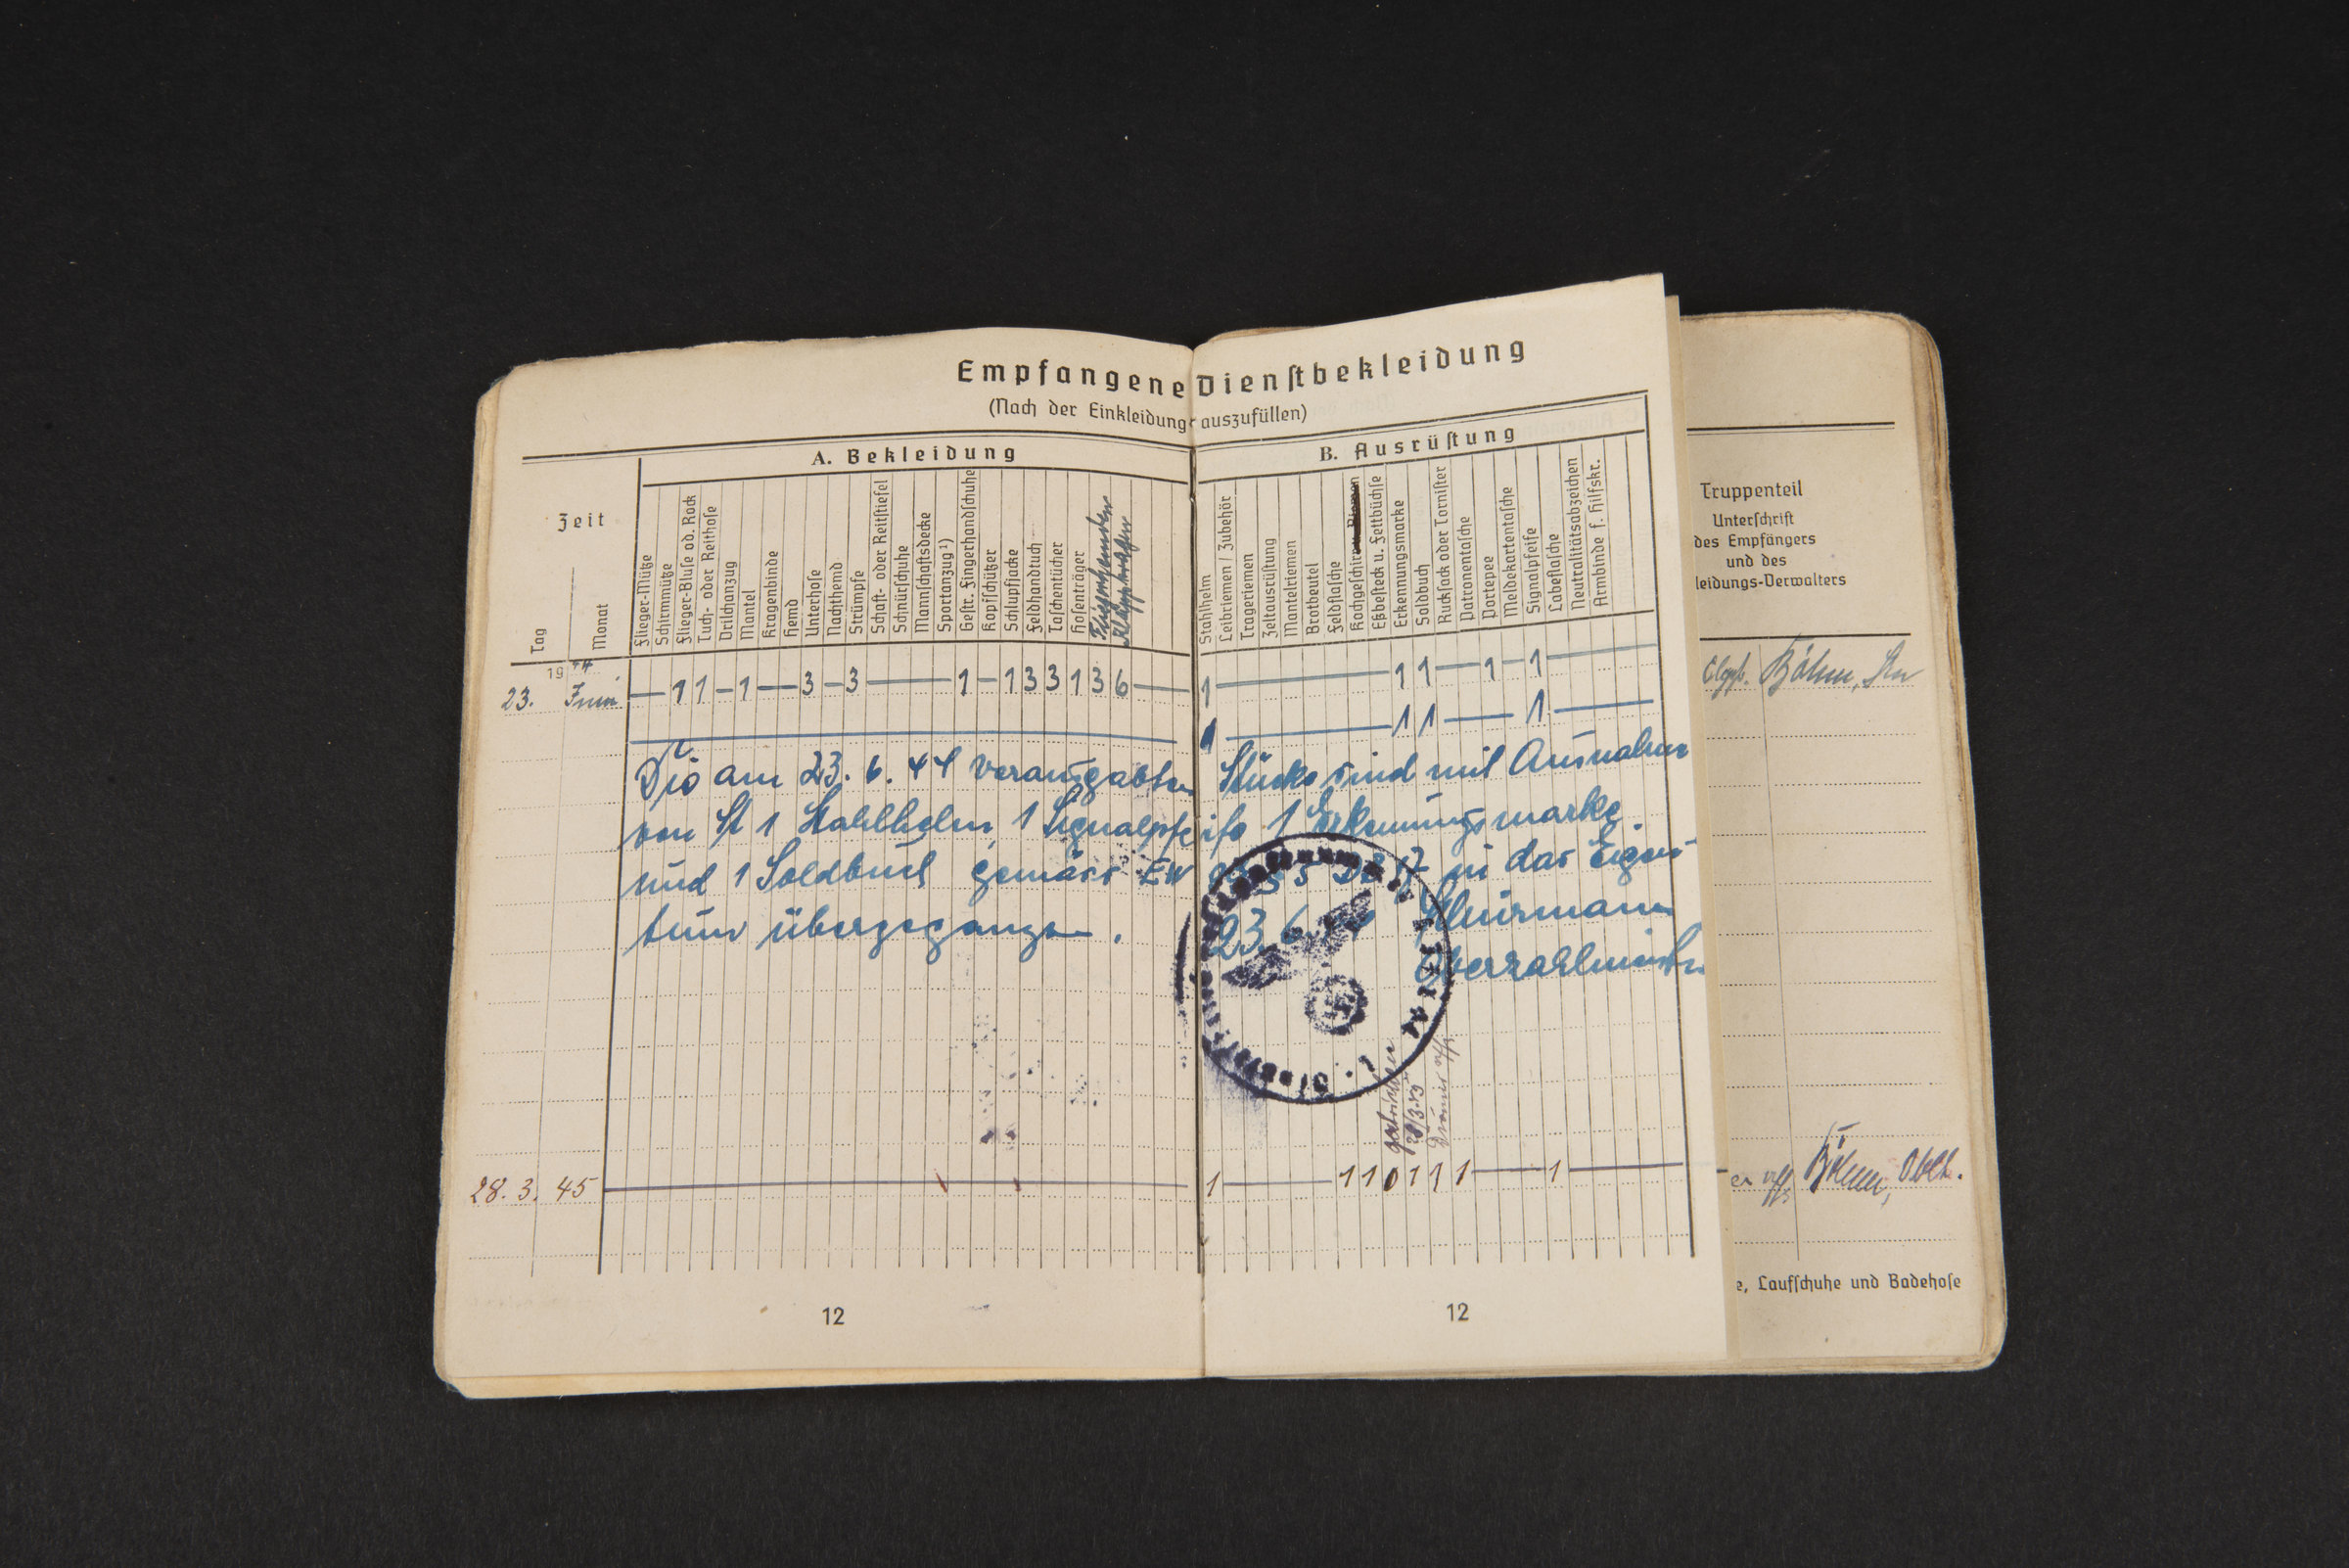 Empfangene Dienstbekleidung
(Nach der Einkleidung auszufüllen)
A. Bekleidung
B. Ausrüstung
Zeit
Tag
Monat
Flieger-Mütze
Schirmmütze
Flieger-Bluse od. Rock
Tuch- oder Reithose
Drilchanzug
Mantel
Kragenbinde
Hemd
Unterhose
Nachthemd
Strümpfe
Schaft- oder Reitstiefel
Schnürschuhe
Mannschaftsdecke
Sportanzug¹)
Gestr. Fingerhandschuhe
Kopfschützer
Schlupfjacke
Feldhandtuch
Taschentücher
Hosenträger
Stahlhelm
Leibriemen / Zubehör
Trageriemen
Zeltausrüstung
Mantelriemen
Brotbeutel
Feldflasche
Kochgeschirr
Eßbesteck u. Fettbüchse
Erkennungsmarke
Soldbuch
Rucksack oder Tornister
Patronentasche
Portepee
Meldekartentasche
Signalpfeife
Labeflasche
Neutralitätsabzeichen
Armbinde f. Hilfskr.
Truppenteil
Unterschrift
des Empfängers
und des
leidungs-Verwalters
19 44
23. Juni — 1 1 — 1 — 3 — 3 — 1 — 1 3 3 1 3 6 — 1 — 1 1 — 1 — 1 —
Böhm,
1 — 1 1 — 1 —
Die am 23. 6. 44 verausgabten Stücke sind mit Ausnahme
von St 1 Stahlhelm, 1 Signalpfeife 1 Erkennungsmarke
und 1 Soldbuch gemäss in das Eigen-
tum übergegangen. 23. 6. 44
Oberzahlmeister
28/3.45
28. 3. 45 — 1 — 1 1 0 1 1 1 — 1 —
Böhm, Oblt.
e, Laufschuhe und Badehose
12
12